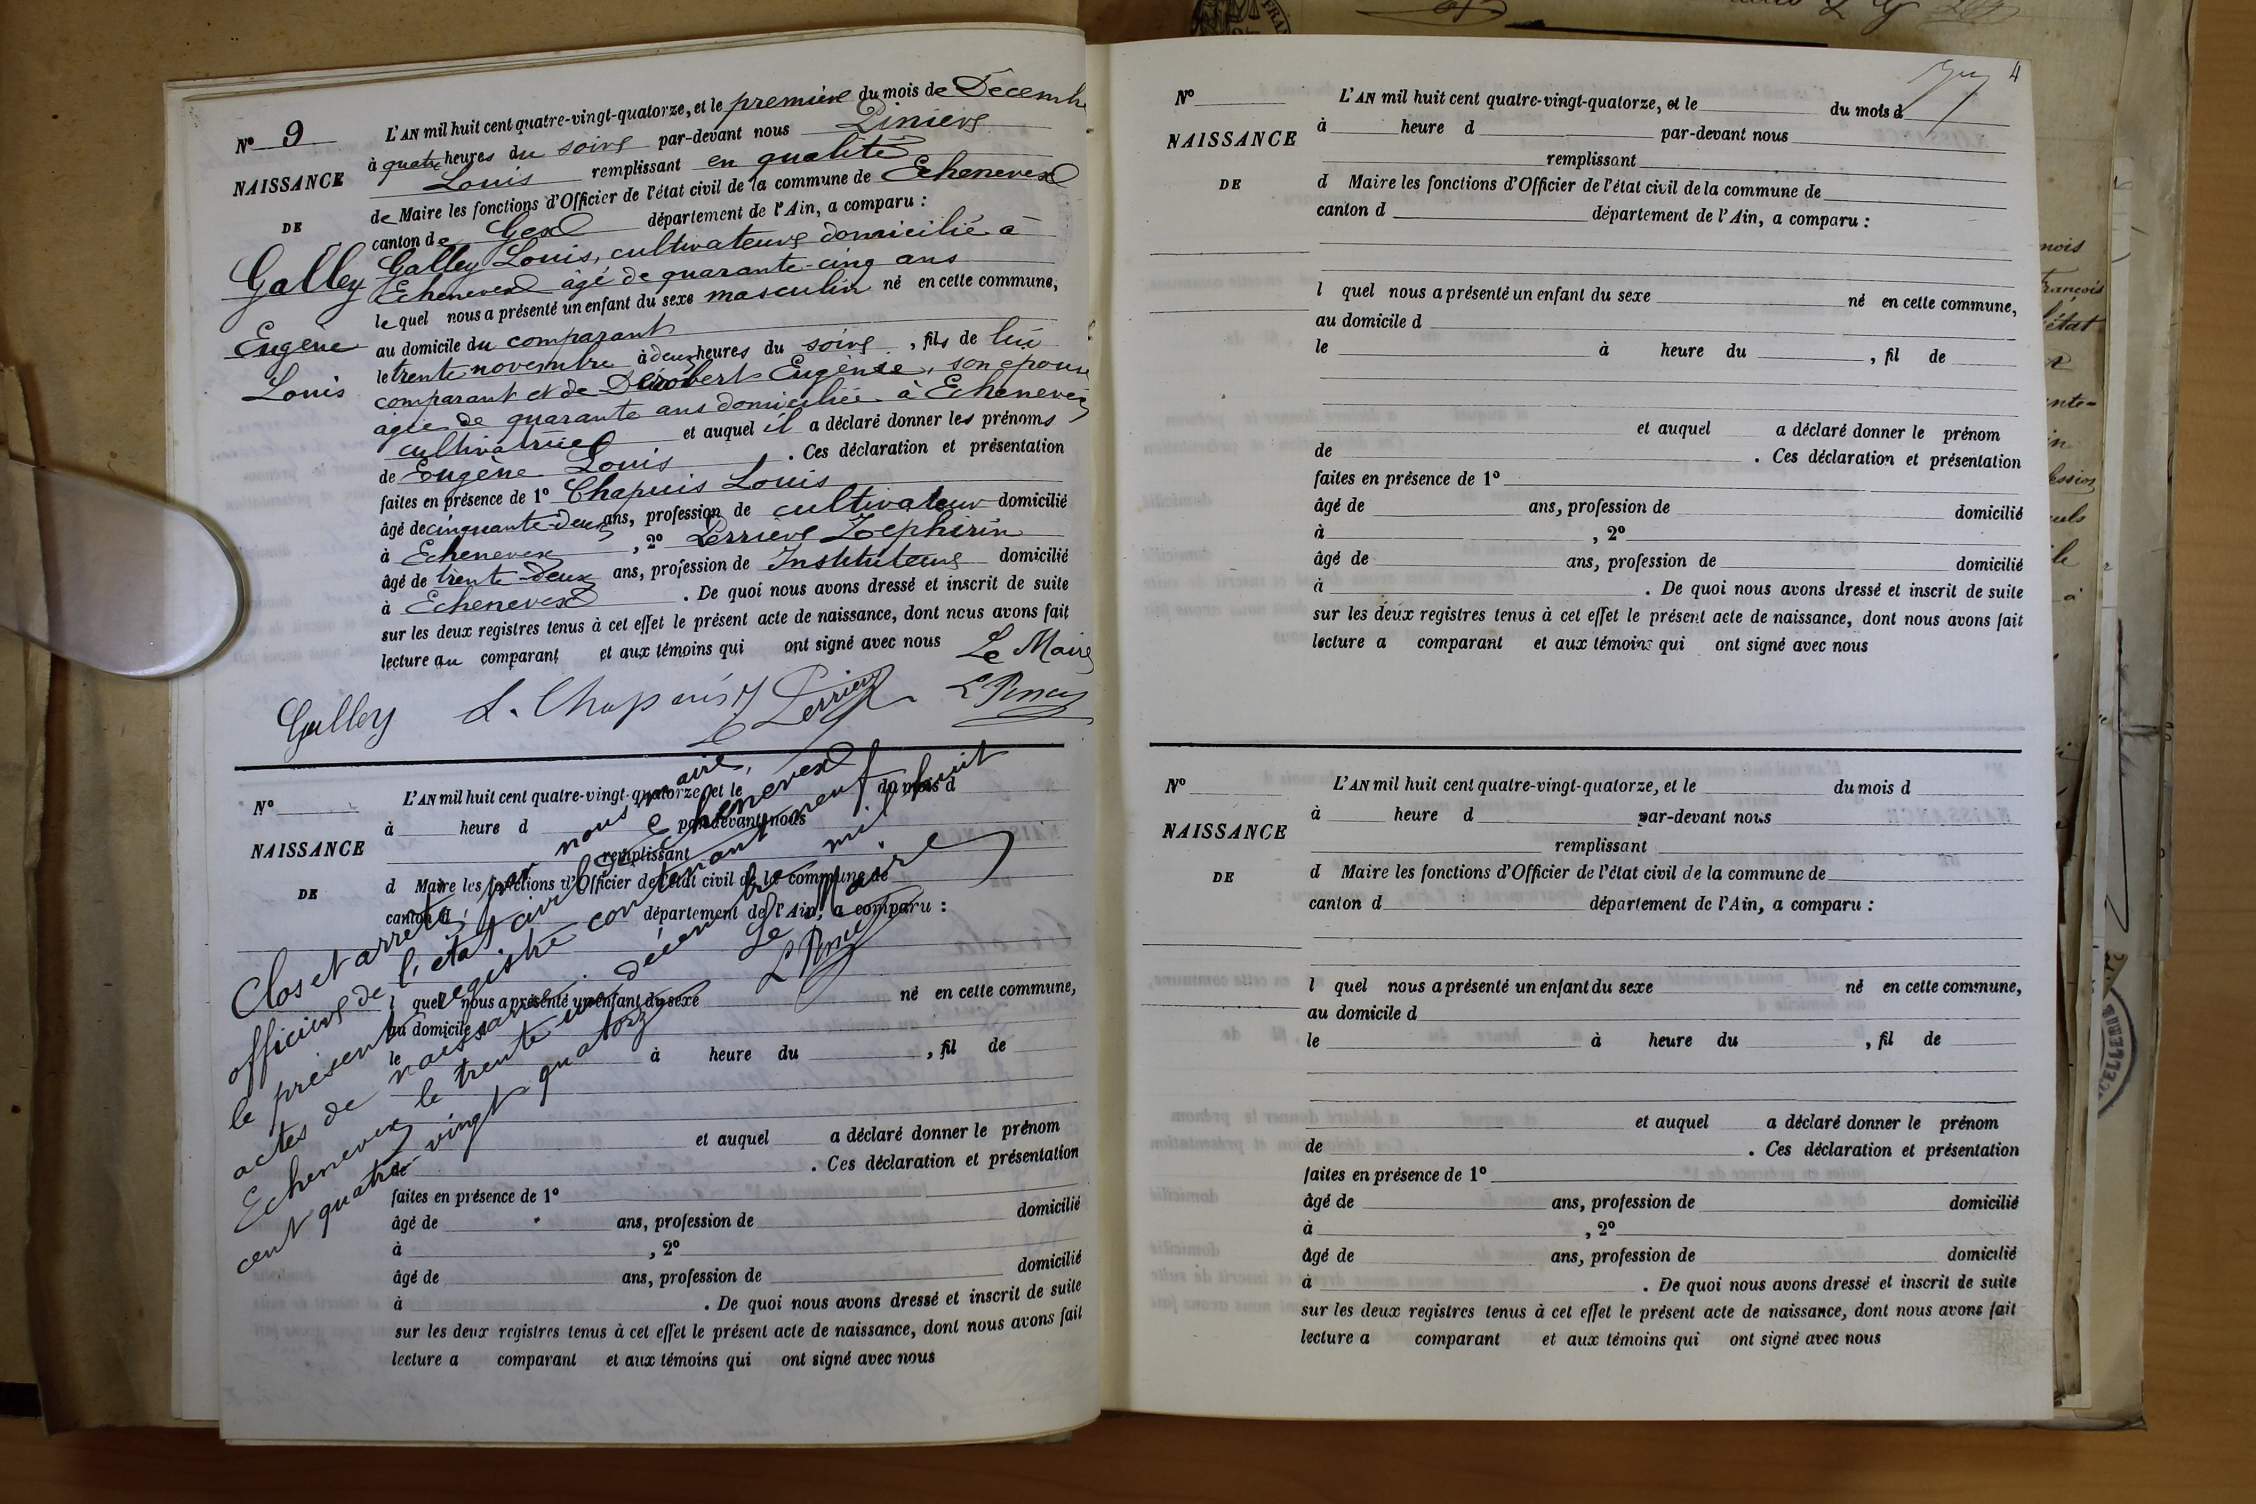 Nº 9
NAISSANCE
DE
Galley
Eugène
Louis
L'AN mil huit cent quatre-vingt-quatorze, et le première du mois de Décemb
à quatre heures du soir par-devant nous
Louis remplissant en qualité
de Maire les fonctions d'Officier de l'état civil de la commune de Echenevex
canton de Gex département de l'Ain, a comparu :
Galley Louis, cultivateur domicilié à
Echenevex âgé de quarante-cinq ans
lequel nous a présenté un enfant du sexe masculin né en cette commune,
au domicile du comparant
le trente novembre à deux heures du soir, fils de lui
comparant et de Dérobert Eugénie, son épouse
agée de quarante ans domiciliée à Echenevex
cultivatrice et auquel il a déclaré donner les prénoms
de Eugène Louis. Ces déclaration et présentation
faites en présence de 1º Chapuis Louis
âgé de cinquante-deux ans, profession de cultivateur domicilié
à Echenevex, 2º Perrier Zephirin
âgé de trente-deux ans, profession de Instituteur domicilié
à Echenevex. De quoi nous avons dressé et inscrit de suite
sur les deux registres tenus à cet effet le présent acte de naissance, dont nous avons fait
lecture au comparant et aux témoins qui ont signé avec nous Le Maire
Galley L. Chapuis Perrier
Nº
NAISSANCE
DE
L'AN mil huit cent quatre-vingt-quatorze, et le du mois d
à heure d par-devant nous
remplissant
d Maire les fonctions d'Officier de l'état civil de la commune de
canton d département de l'Ain, a comparu :
l quel nous a présenté un enfant du sexe né en cette commune,
au domicile
le à heure du , fil de
et auquel a déclaré donner le prénom
de . Ces déclaration et présentation
faites en présence de 1º
âgé de ans, profession de domicilié
à , 2º
âgé de ans, profession de domicilié
à . De quoi nous avons dressé et inscrit de suite
sur les deux registres tenus à cet effet le présent acte de naissance, dont nous avons fait
lecture a comparant et aux témoins qui ont signé avec nous
Clos et arrêté par nous maire,
officier de l'état civil de Echenevex
le présent registre contenant neuf
actes de naissance
Echenevex le trente un décembre mil huit
cent quatre vingt quatorze
Le Maire
4
Nº
NAISSANCE
DE
L'AN mil huit cent quatre-vingt-quatorze, et le du mois d
à heure d par-devant nous
remplissant
d Maire les fonctions d'Officier de l'état civil de la commune de
canton d département de l'Ain, a comparu :
l quel nous a présenté un enfant du sexe né en cette commune,
au domicile d
le à heure du , fil de
et auquel a déclaré donner le prénom
de . Ces déclaration et présentation
faites en présence de 1º
âgé de ans, profession de domicilié
à , 2º
âgé de ans, profession de domicilié
à . De quoi nous avons dressé et inscrit de suite
sur les deux registres tenus à cet effet le présent acte de naissance, dont nous avons fait
lecture a comparant et aux témoins qui ont signé avec nous
Nº
NAISSANCE
DE
L'AN mil huit cent quatre-vingt-quatorze, et le du mois d
à heure d par-devant nous
remplissant
d Maire les fonctions d'Officier de l'état civil de la commune de
canton d département de l'Ain, a comparu :
l quel nous a présenté un enfant du sexe né en cette commune,
au domicile d
le à heure du , fil de
et auquel a déclaré donner le prénom
de . Ces déclaration et présentation
faites en présence de 1º
âgé de ans, profession de domicilié
à , 2º
âgé de ans, profession de domicilié
à . De quoi nous avons dressé et inscrit de suite
sur les deux registres tenus à cet effet le présent acte de naissance, dont nous avons fait
lecture a comparant et aux témoins qui ont signé avec nous